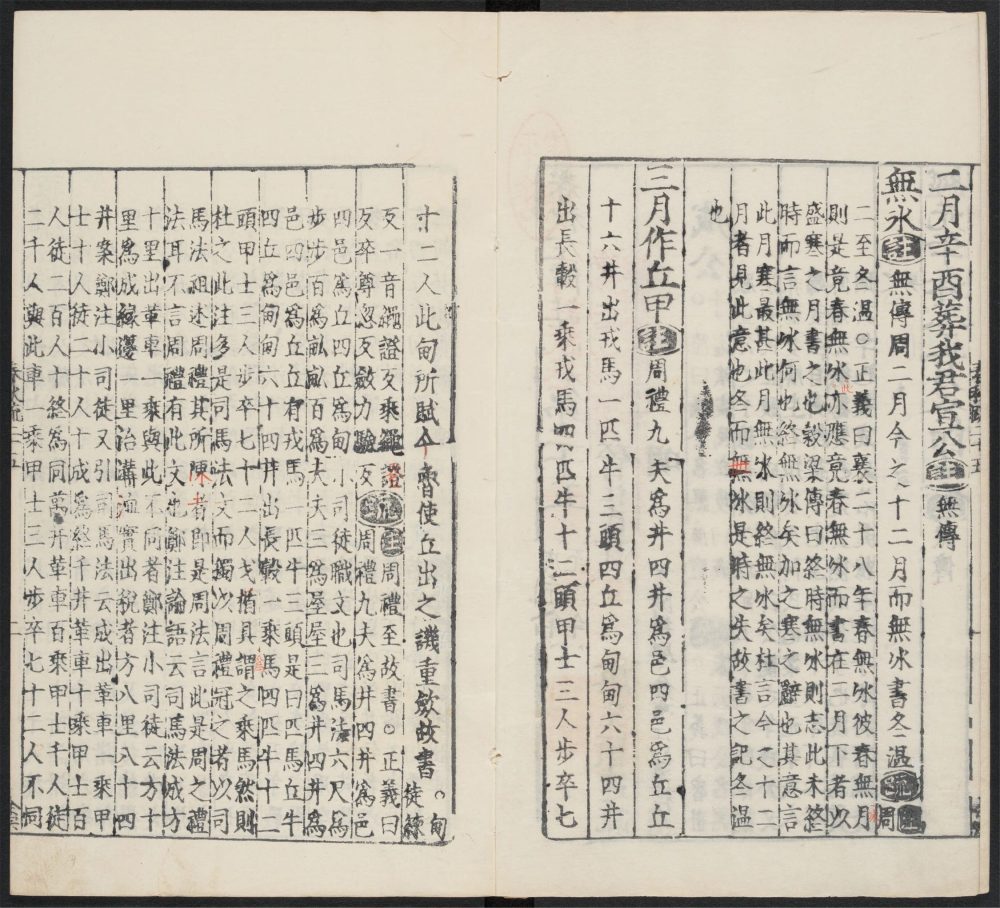 二月辛酉葬我君宣公注無傳
無冰注無傳周二月今之十二月而無冰書冬溫疏注周
二至冬溫○正義曰襄二十八年春無冰彼春無月
則是竟春無冰此亦應竟春無冰而書在二月下者以
盛寒之月書之也穀梁傳曰終時無冰則志此未終
時而言無冰何也終無冰矣加之寒之辭也其意言
此月寒最甚此月無冰則終無冰矣杜言今之十二
月者見此意也冬而無冰是時之失故書之記冬溫
也
三月作丘甲注周禮九夫爲井四井爲邑四邑爲丘丘
十六井出戎馬一匹牛三頭四丘爲甸甸六十四井
出長轂一乘戎馬四匹牛十二頭甲士三人步卒七
十二人此甸所賦今魯使丘出之譏重斂故書○甸徒練
反一音繩證反乘繩證
反卒尊忽反斂力驗反疏注周禮至故書○正義曰
周禮九夫爲井四井爲邑
四邑爲丘四丘爲甸小司徒職文也司馬法六尺爲
步步百爲畝畝百爲夫夫三爲屋屋三爲井四井爲
邑四邑爲丘丘有戎馬一匹牛三頭是曰匹馬丘牛
四丘爲甸甸六十四井出長轂一乘馬四匹牛十二
頭甲士三人步卒七十二人戈楯具謂之乘馬然則
杜之此注多是司馬法文而獨以周禮冠之者以司
馬法祖述周禮其所陳者即是周法言此是周之禮
法耳不言周禮有此文也鄭注論語云司馬法成方
十里出革車一乘與此不同者鄭注小司徒云方十
里爲成緣邊一里治溝洫實出稅者方八里八十四
井案鄭注小司徒又引司馬法云成出革車一乘甲
士十人徒二十人十成爲終千井革車十乘甲士百
人徒二百人十終爲同萬井革車百乘甲士千人徒
二千人與此車一乘甲士三人步卒七十二人不同